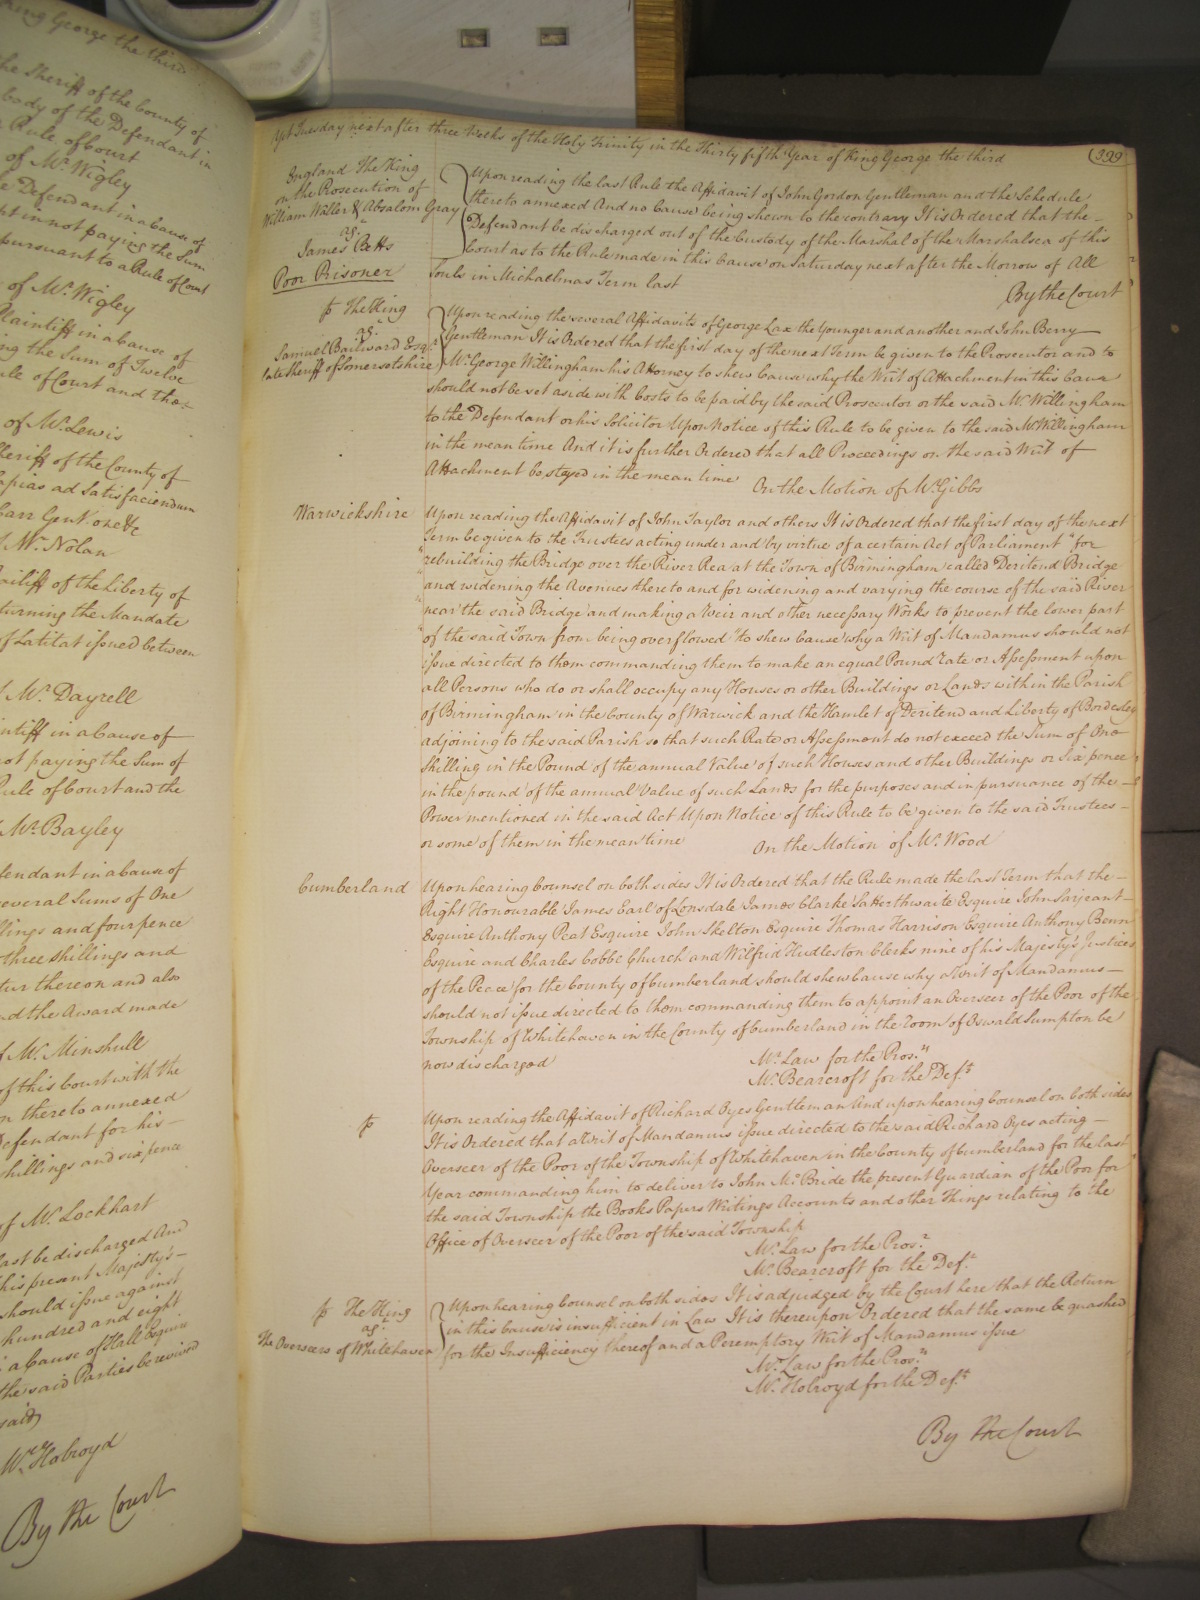 King George the third
the Sheriff of the County of
body of the Defendant in
Rule of Court
of Mr. Wigley
Defendant in a Cause of
in not paying the Sum
pursuant to a Rule of Court
of Mr. Wigley
Plaintiff in a Cause of
the Sum of Twelve
Rule of Court and that
of Mr. Lewis
Sheriff of the County of
Capias ad Satisfaciendum
Carr Gent. one &c
Mr. Nolan
Bailiff of the Liberty of
turning the Mandate
of Latitat issued between
Mr. Dayrell
Plaintiff in a Cause of
not paying the Sum of
Rule of Court and the
Mr. Bayley
Defendant in a Cause of
several Sums of One
shillings and four pence
three Shillings and
thereon and also
and the Award made
of Mr. Minshull
of this Court with the
thereto annexed
Defendant for his
Shillings and six pence
of Mr. Lockhart
last be discharged And
his present Majesty's
should issue against
hundred and eight
a Cause of Hall Esquire
the said Parties be revived
said
Mr. Holroyd
By the Court
Yet Tuesday next after three Weeks of the Holy Trinity in the Thirty fifth Year of King George the third
399
England The King
on the Prosecution of
William Willer & Absalom Gray
agt.
James Potts
Poor Prisoner
Upon reading the last Rule the Affidavit of John Gordon Gentleman and the Schedule
thereto annexed And no Cause being shewn to the contrary It is Ordered that the
Defendant be discharged out of the Custody of the Marshal of the Marshalsea of this
Court as to the Rule made in this Cause on Saturday next after the Morrow of All
Souls in Michaelmas Term last
By the Court
The King
agt.
Samuel Bailward Esqr.
late Sheriff of Somersetshire
Upon reading the several Affidavits of George Lax the Younger and another and John Berry
Gentleman It is Ordered that the first day of the next Term be given to the Prosecutor and to
Mr. George Willingham his Attorney to shew Cause why the Writ of Attachment in this Cause
should not be set aside with Costs to be paid by the said Prosecutor or the said Mr. Willingham
to the Defendant or his Solicitor Upon Notice of this Rule to be given to the said Mr. Willingham
in the mean time And it is further Ordered that all Proceedings on the said Writ of
Attachment be stayed in the mean time
On the Motion of Mr. Gibbs
Warwickshire
Upon reading the Affidavit of John Taylor and others It is Ordered that the first day of the next
Term be given to the Trustees acting under and by virtue of a certain Act of Parliament "for
"rebuilding the Bridge over the River Rea at the Town of Birmingham called Deritend Bridge
and widening the Avenues thereto and for widening and varying the course of the said River
"near the said Bridge and making a Weir and other necessary Works to prevent the lower part
"of the said Town from being overflowed" to shew Cause why a Writ of Mandamus should not
issue directed to them commanding them to make an equal Pound rate or Assessment upon
all Persons who do or shall occupy any Houses or other Buildings or Lands within the Parish
of Birmingham in the County of Warwick and the Hamlet of Deritend and Liberty of Bordesley
adjoining to the said Parish so that such Rate or Assessment do not exceed the Sum of One
Shilling in the Pound of the annual Value of such Houses and other Buildings or Six pence
in the pound of the annual Value of such Lands for the purposes and in pursuance of the
Power mentioned in the said Act Upon Notice of this Rule to be given to the said Trustees
or some of them in the mean time
On the Motion of Mr. Wood
Cumberland
Upon hearing Counsel on both sides It is Ordered that the Rule made the last Term that the
Right Honourable James Earl of Lonsdale James Clarke Satterthwaite Esquire John Sarjeant
Esquire Anthony Peat Esquire John Skelton Esquire Thomas Harrison Esquire Anthony Benn
Esquire and Charles Cobbe Church and Wilfrid Hudleston Clerks nine of his Majesty's Justices
of the Peace for the County of Cumberland should shew Cause why a Writ of Mandamus
should not issue directed to them commanding them to appoint an Overseer of the Poor of the
Township of Whitehaven in the County of Cumberland in the Room of Oswald Sumpton be
now discharged
Mr. Law for the Pros.r
Mr. Bearcroft for the Def.t
Upon reading the Affidavit of Richard Byes Gentleman And upon hearing Counsel on both sides
It is Ordered that a Writ of Mandamus issue directed to the said Richard Byes acting
Overseer of the Poor of the Township of Whitehaven in the County of Cumberland for the last
Year commanding him to deliver to John Mc.Bride the present Guardian of the Poor for
the said Township the Books Papers Writings Accounts and other Things relating to the
Office of Overseer of the Poor of the said Township
Mr. Law for the Pros.r
Mr. Bearcroft for the Def.t
The King
agt.
The Overseers of Whitehaven
Upon hearing Counsel on both sides It is adjudged by the Court here that the Return
in this Cause is insufficient in Law It is thereupon Ordered that the same be quashed
for the Insufficiency thereof and a Peremptory Writ of Mandamus issue
Mr. Law for the Pros.r
Mr. Holroyd for the Def.t
By the Court